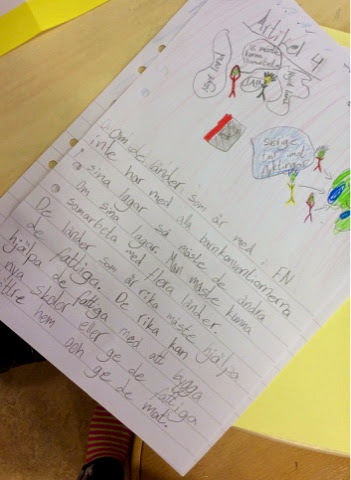 Artikel 4
Vi måste
kunna
samarbeta
JA!!
Om de länder som är med i FN
inte har med alla barnkonventionerna
i sina lagar så måste de ändra
om sina lagar. Man måste kunna
samarbeta med flera länder.
De länder som är rika måste
hjälpa de fattiga. De rika kan hjälpa
de fattiga med att bygga
nya skolor eller ge de fattiga
bättre hem och ge de mat.